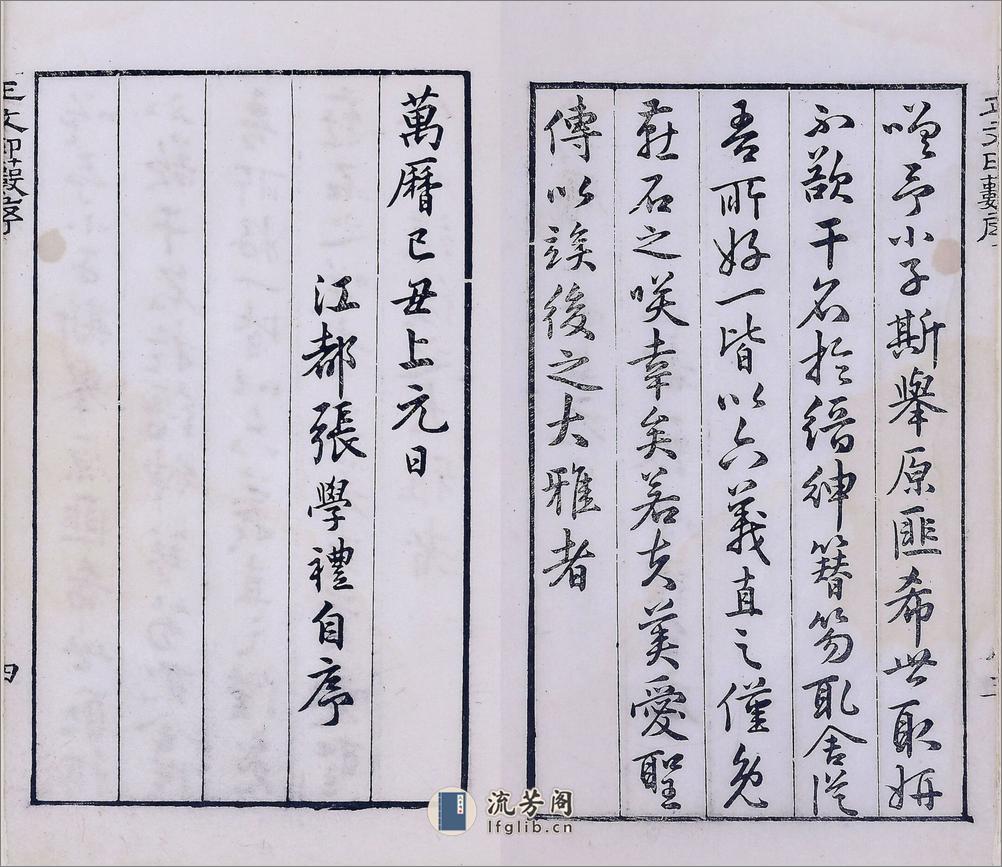 嘆予小子斯舉原匪希世取妍
不欲干名於縉紳簪笏耴舍從
吾所好一皆以六義直之僅免
燕石之咲幸矣若夫美愛聖
傳以竢後之大雅者
萬曆己丑上元日
江都張學禮自序
正文印藪序
四
流芳阁
lfglib.cn